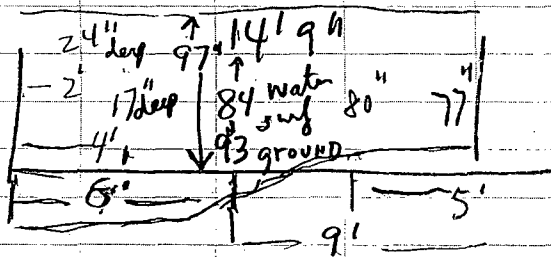 24" deep 97" 14' 9"
2' 17" deep 84 water 80" 77"
surf
4' 93 ground
6' 5'
9'